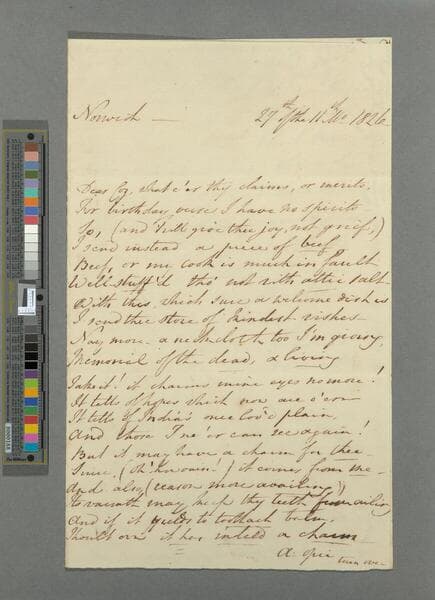 Norwich —
27th of the 11th Mo 1826
Dear Joy, what e'er thy claims, or merits,
For birthday verse I have no spirits
So, (and 'twill give thee joy, not grief,)
I send instead a piece of beef
Beef, or my cook is much in fault
Well stuff'd tho' not with attic salt
With this, which sure a welcome dish is
I send thee store of kindest wishes
Nay more a neckcloth too I'm giving,
Memorial of the dead, & living
Take it! it charms mine eyes no more!
It tells of hopes which now are o'er
It tells of India's once lov'd plain,
And those I ne'er can see again!
But it may have a charm for thee
Since, (Oh! known!) it comes from me
And also, (reason more availing)
Its warmth may keep thy teeth from ailing
And if it yields to toothach balm,
Thou'lt own it has indeed a charm
A. Opie
turn over